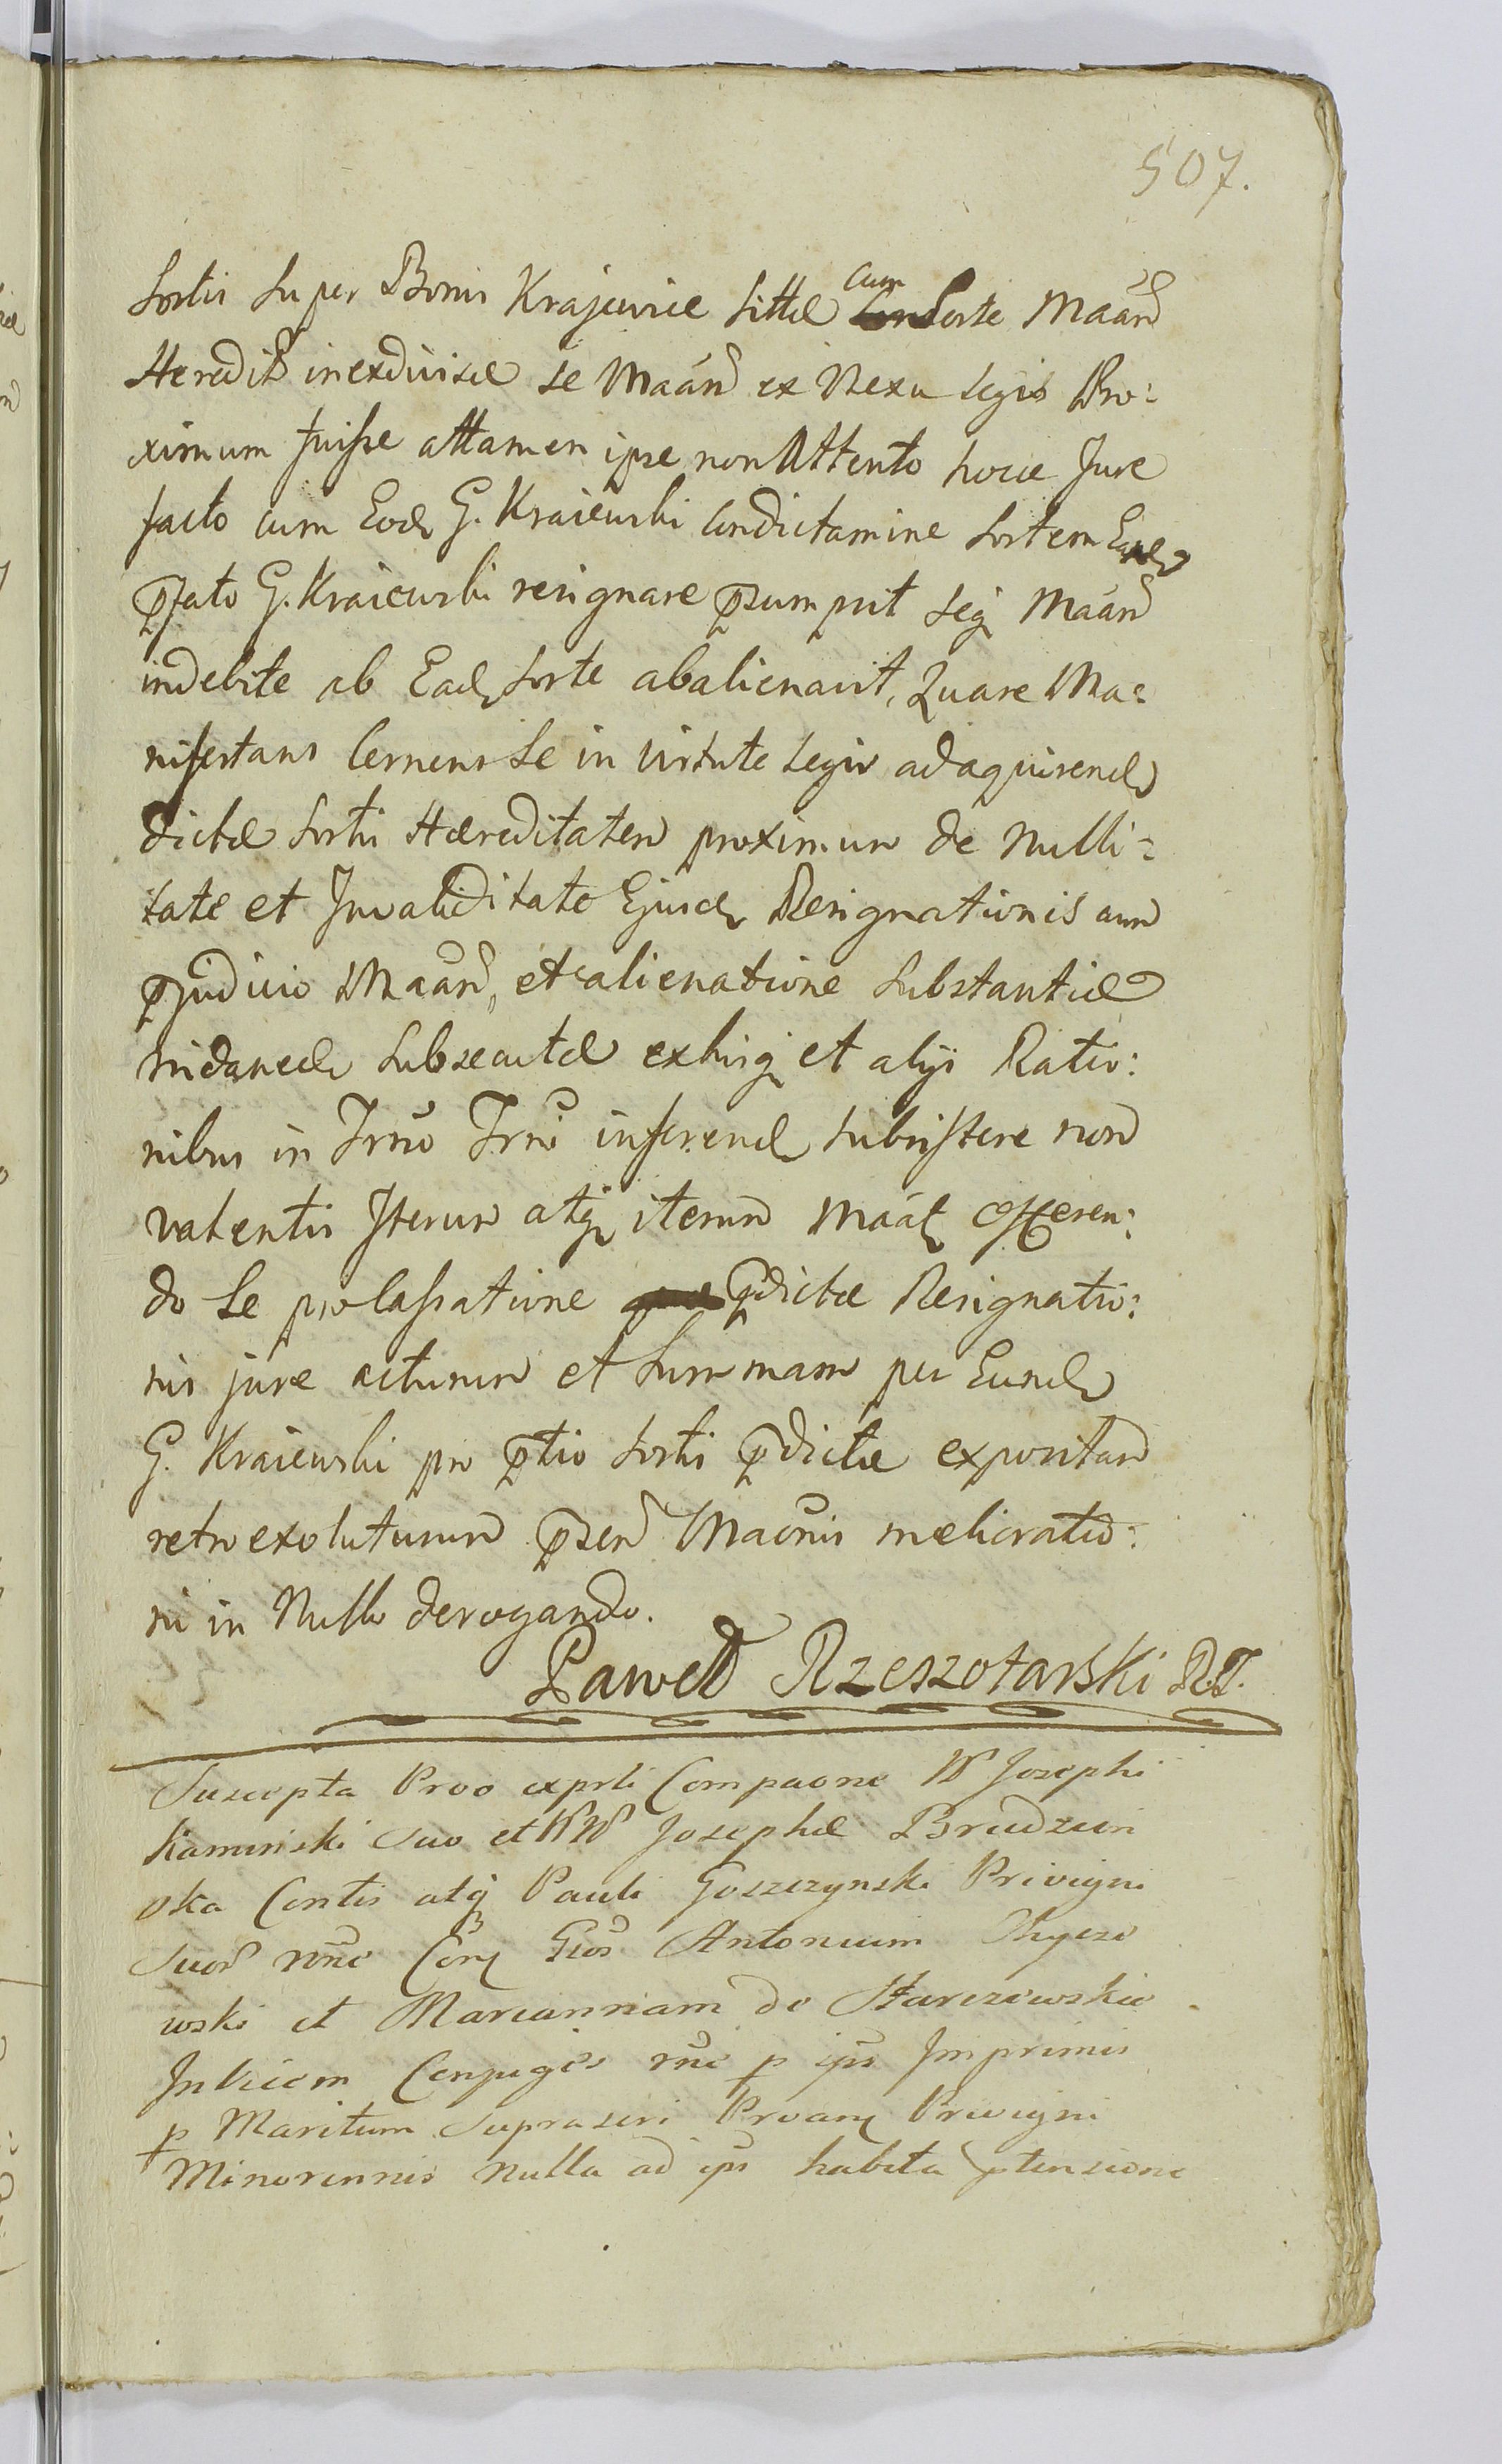 507.
Sortis Super Bonis Krajewice Sittæ Cum Sorte Maãn
Heredit inexdivisæ se Maãn ex Nexu Legis Pro:
ximum fuisse attamen ipse non Attento hocce Jure
facto cum Eod G. Kraiewski Condictamine Sortem Eand
p̃fato G. Kraiewski resignare p̃sumpsit seq Maãn
indebite ab Ead Sorte abalienavit, Quare Ma=
nifestans Cernens Se in virtute Legis ad aquirend
dictæ Sortis Hæreditatem proximum de Nulli=
tate et Invaliditate Ejusd Resignationis cum
p̃judicio Maãn, et alienatione Substantiæ
Subsecutæ exhisq et alys Ratio:
nibus in Trno Trni inferend Subsistere non
valentis Iterum atq iterum Maãt offeren:
do Se pro Cassatione p̃dictæ Resignatio:
nis jure acturum et Summam per Eund
G. Kraiewski pro p̃tio Sortis p̃dictæ expositam
retro exoluturum p̃sen Maõnis melioratio:
ni in Nullo derogando.
Paweł Rzeszotarski R.T.
Suscepta Proo exprti Compaone W Josephi
Kaminski Suo et WW Josephæ Brudzew
ska Contis atq Pauli Goszczynski Privigni
Suor rõne Cõnq Gsos Antonium
wski et Mariannam de Starczewskie
Invicem Conjuges rñe p ips Imprimis
p Maritum Suprascri Proanq Privigni
Minorennis nulla ad ips habita ptensione